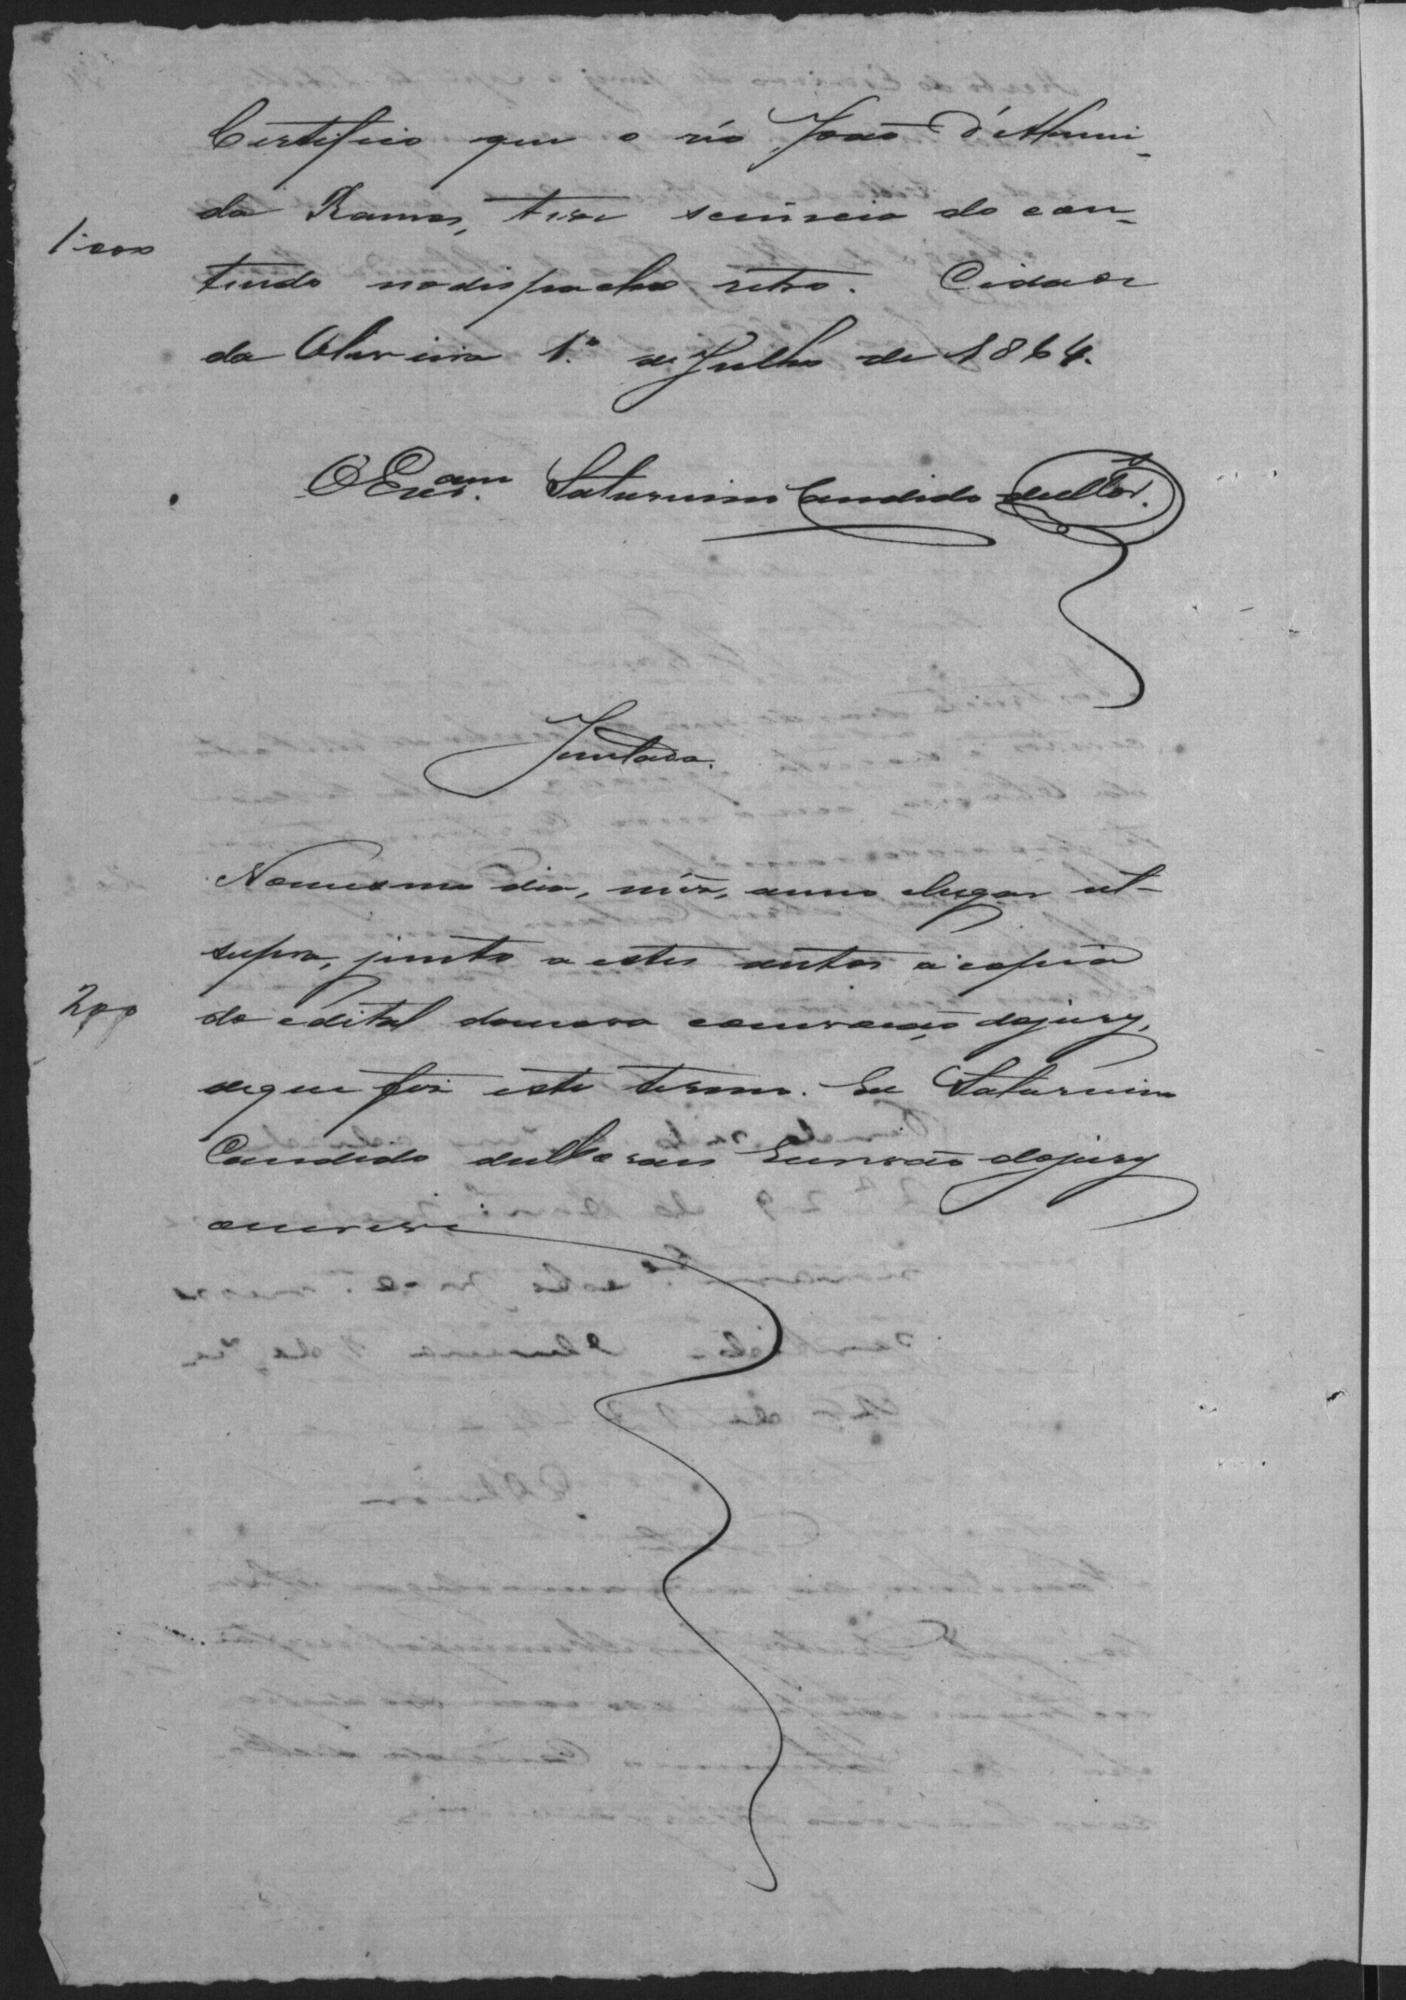 Certifico que o réo João d'Almei-
da Ramos, teve sciencia do con-
1:000
tiudo nodispacho retro. Cidade
da Oliveira 1.º de Julho de 1864.
O Escr.am Saturnino Candido
Juntada.
Nomesmo dia, mez, anno elugar ut-
supra, junto a estes autos a copia
200
do edital danova convocação dojury,
deque fiz este termo. Eu Saturnino
Candido Escrivão dojury
escrevi